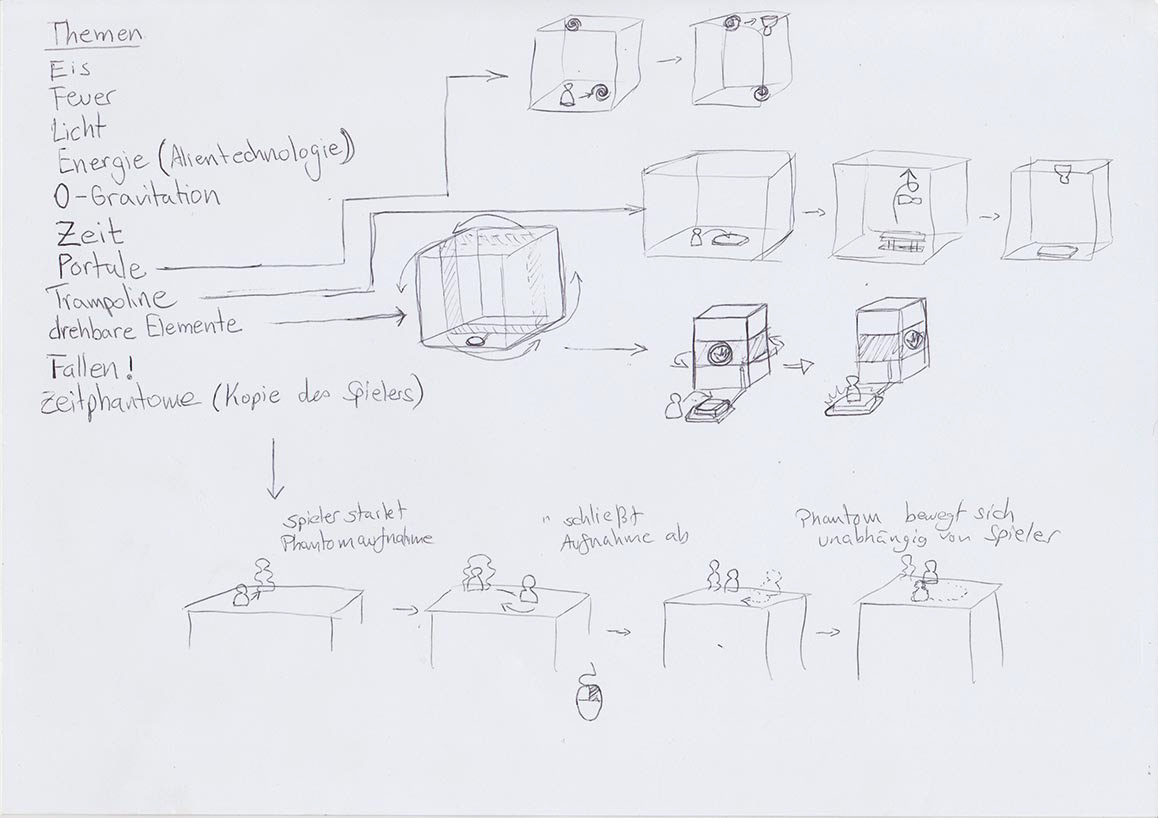 Themen
Eis
Feuer
Licht
Energie (Alientechnologie)
0-Gravitation
Zeit
Portale
Trampoline
drehbare Elemente
Fallen!
Zeitphantome (Kopie des Spielers)
Spieler startet
Phantomaufnahme
" schließt
Aufnahme ab
Phantom bewegt sich
unabhängig von Spieler